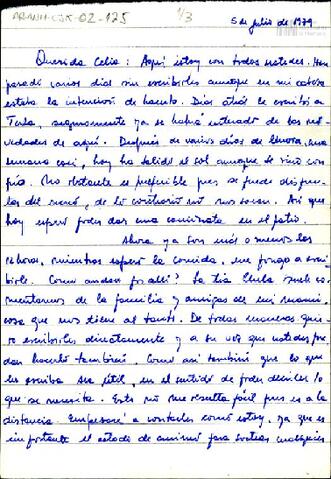 ARANH-CJK-02-125
1/3
5 de julio de 1979
Querida Celia: Aquí estoy con todas ustedes. Han
pasado varios días sin escribirles aunque en mi cabeza
estaba la intención de hacerlo. Días atrás le escribí a
seguramente ya se habrá enterado de las no-
vedades de aquí. Después de varios días de lluvia, una
semana casi, hoy ha salido el sol aunque se vino con
frío. No obstante es preferible pues se puede disfru-
tar del mismo, de lo contrario no nos sacan. Así que
hoy espero poder dar una caminata en el patio.
Ahora ya son más o menos las
horas, mientras espero la comida, me pongo a escri-
birle. Como andan por allí? La tía suele co-
mentarnos de la familia y amigas de mi mamá
cosa que nos tiene al tanto. De todas maneras quie-
ro escribirles directamente y a su vez que ustedes pue-
dan hacerlo también. Como así también que lo que
les escriba sea útil, en el sentido de poder decirles lo
que se necesita. Esto no me resulta fácil pues es a la
distancia. Empezaré a contarles como estoy, ya que es
importante el estado de ánimo para sortear cualquier